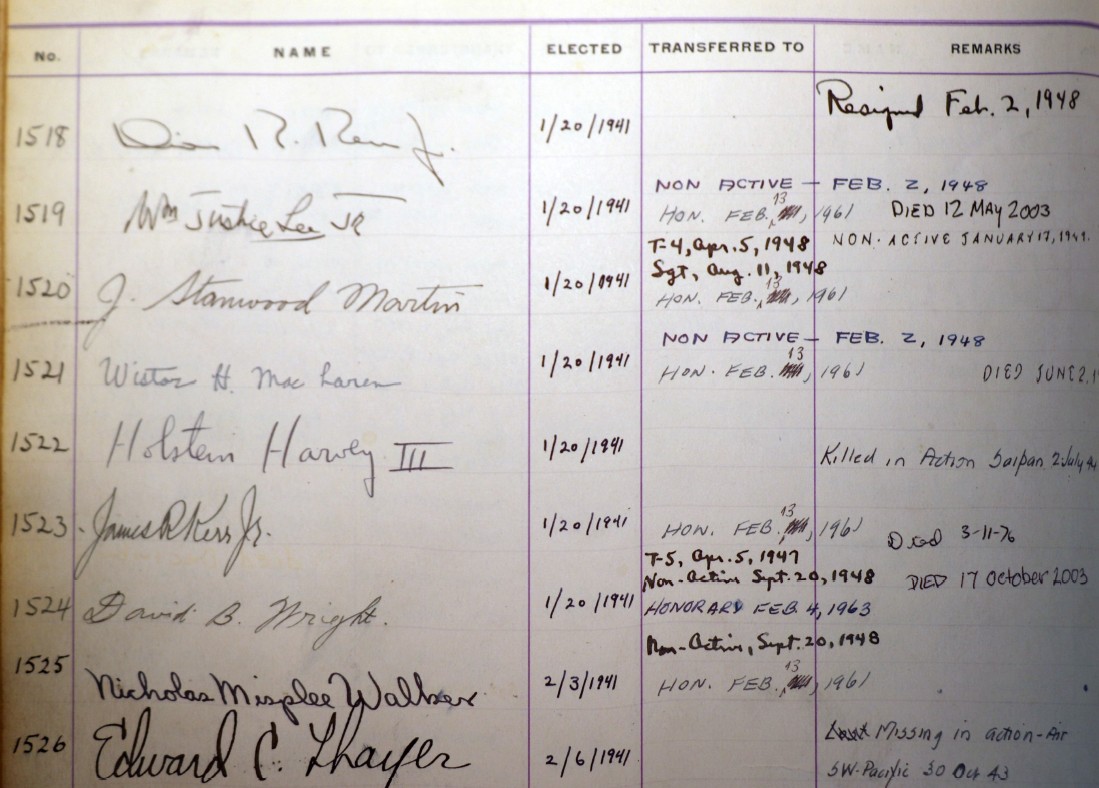 No. NAME ELECTED TRANSFERRED TO REMARKS
Resigned Feb. 2, 1948
1518 R. Jr. 1/20/1941
NON ACTIVE — FEB. 2, 1948
1519 Wm Justice Lee JR 1/20/1941 HON. FEB. 13, 1961 DIED 12 MAY 2003
T-4, Apr. 5, 1948 NON-ACTIVE JANUARY 17, 1949.
Sgt, Aug. 11, 1948
1520 J. Stanwood Martin 1/20/1941 HON. FEB. 13, 1961
NON ACTIVE — FEB. 2, 1948
1521 Wistar H. MacLaren 1/20/1941 HON. FEB. 13, 1961 DIED JUNE 2, 1
1522 Holstein Harvey III 1/20/1941 Killed in Action Saipan 2 July 44
1523 James R Kerr Jr. 1/20/1941 HON. FEB. 13, 1961 Died 3-11-76
T-5, Apr. 5, 1947
Non-Active Sept. 20, 1948 DIED 17 October 2003
1524 David B. Wright. 1/20/1941 HONORARY FEB 4, 1963
Non-Active, Sept. 20, 1948
1525 Nicholas Misplee Walker 2/3/1941 HON. FEB. 13, 1961
1526 Edward C. Thayer 2/6/1941 Missing in action-Air
SW-Pacific 30 Oct 43